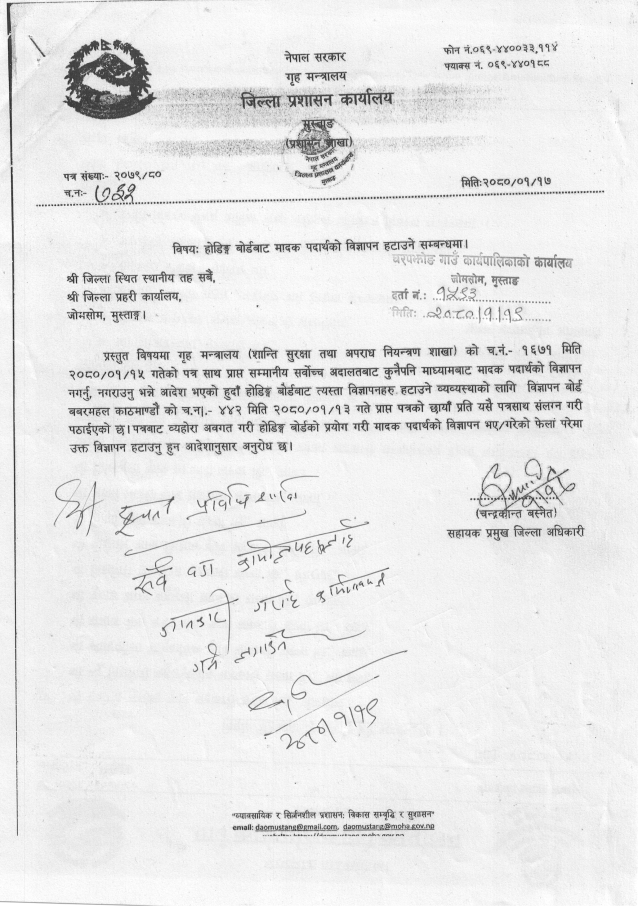 नेपाल सरकार
गृह मन्त्रालय
जिल्ला प्रशासन कार्यालय
मुस्ताङ
(प्रशासन शाखा)
फोन नं.०६९-४४००३३,११४
फ्याक्स नं. ०६९-४४०१८८
नेपाल सरकार
गृह मन्त्रालय
जिल्ला प्रशासन कार्यालय
मुस्ताङ
पत्र संख्याः- २०७९/८०
च.नः-
मितिः२०८०/०१/१७
विषयः होडिङ्ग बोर्डबाट मादक पदार्थको विज्ञापन हटाउने सम्बन्धमा।
गाउँ कार्यपालिकाको कार्यालय
जोमसोम, मुस्ताङ
दर्ता नं.: १५९३
मितिः २०८०/१/१९
श्री जिल्ला स्थित स्थानीय तह सबै,
श्री जिल्ला प्रहरी कार्यालय,
जोमसोम, मुस्ताङ।
प्रस्तुत विषयमा गृह मन्त्रालय (शान्ति सुरक्षा तथा अपराध नियन्त्रण शाखा) को च.नं.- १६७१ मिति
२०८०/०१/१५ गतेको पत्र साथ प्राप्त सम्मानीय सर्वोच्च अदालतबाट कुनैपनि माध्यामबाट मादक पदार्थको विज्ञापन
नगर्नु, नगराउनु भन्ने आदेश भएको हुदाँ होडिङ्ग बोर्डबाट त्यस्ता विज्ञापनहरु हटाउने व्यव्यस्थाको लागि विज्ञापन बोर्ड
बबरमहल काठमाण्डौ को च.न।.- ४४२ मिति २०८०/०१/१३ गते प्राप्त पत्रको छायाँ प्रति यसै पत्रसाथ संलग्न गरी
पठाईएको छ। पत्रबाट व्यहोरा अवगत गरी होडिङ्ग बोर्डको प्रयोग गरी मादक पदार्थको विज्ञापन भए/गरेको फेला परेमा
उक्त विज्ञापन हटाउनु हुन आदेशानुसार अनुरोध छ।
(चन्द्रकान्त बस्नेत)
सहायक प्रमुख जिल्ला अधिकारी
सूचना प्रविधि शाखा
सबै वडा कार्यालयहरुलाई
जानकारी गराई कार्यान्वयन
गर्न लगाउने
२०८०/१/१९
"व्यावसायिक र सिर्जनशील प्रशासन: विकास समृद्धि र सुशासन"
email: daomustang@gmail.com, daomustang@moha.gov.np